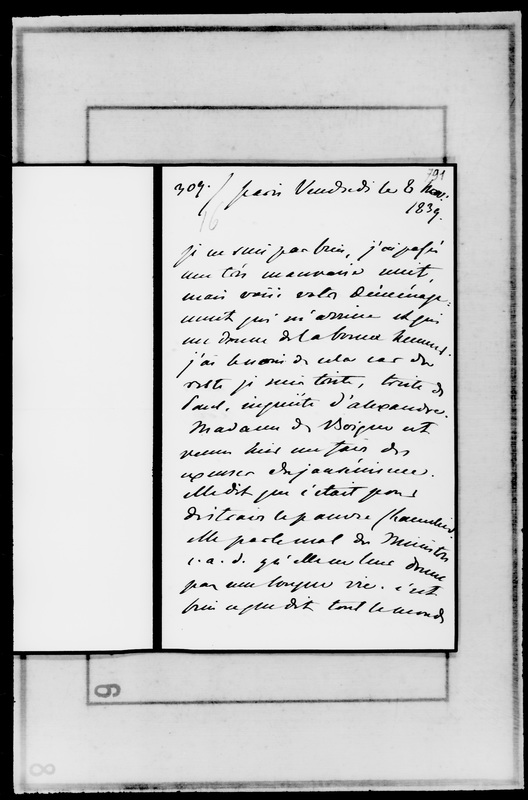 791
309. / Paris Vendredi le 8 Nov:
16
1839.
je ne suis pas bien, j'ai passé
une très mauvaise nuit,
mais voici votre Déménage-
ment qui m'arrive et qui
me donne de la bonne humeur.
j'ai besoin de cela car du
reste je suis triste, triste de
Paul, inquiète d'alexandre.
Madame de Boigne est
venue hier me faire des
excuses du jansénisme.
elle dit que c'était pour
distraire le pauvre Chancelier.
elle parle mal du Ministère
c. a. d. qu'elle ne leur donne
pas une longue vie. c'est
bien ce que dit tout le monde
6
8